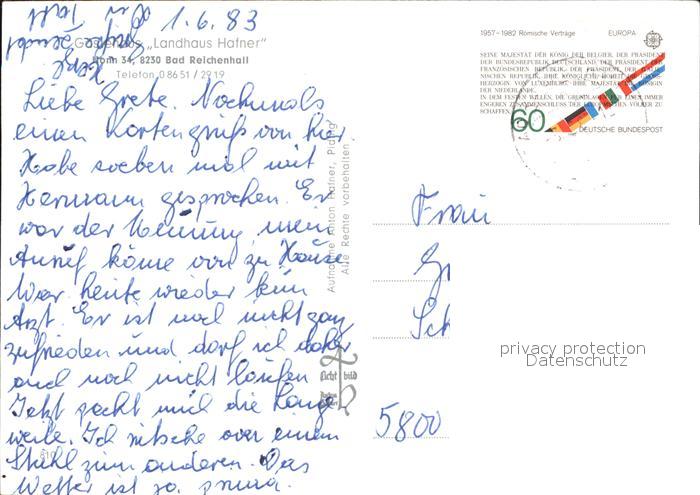 1.6.83
Gästehaus „Landhaus Hafner"
Nonn 34, 8230 Bad Reichenhall
Telefon 08651/2919
Liebe Grete. Nochmals
einen Kartengruß von hier.
Habe soeben mal mit
Hermann gesprochen. Er
war der Meinung mein
Anruf käme von zu Hause
War heute wieder beim
Arzt. Er ist noch nicht ganz
zufrieden und darf ich daher
auch noch nicht laufen
Jetzt packt mich die Lange
weile. Ich rutsche von einem
Stuhl zum anderen. Das
Wetter ist ja prima.
Aufnahme Anton Hafner, Piding
Alle Rechte vorbehalten
Licht bild
1957–1982 Römische Verträge EUROPA
SEINE MAJESTÄT DER KÖNIG DER BELGIER, DER PRÄSIDENT
DER BUNDESREPUBLIK DEUTSCHLAND, DER PRÄSIDENT DER
FRANZÖSISCHEN REPUBLIK, DER PRÄSIDENT DER
NISCHEN REPUBLIK, IHRE KÖNIGLICHE
HERZOGIN VON LUXEMBURG, IHRE MAJESTÄT KÖNIGIN
DER NIEDERLANDE,
IN DEM FESTEN WILLEN, DIE GRUNDLAGEN EINEN IMMER
ENGEREN ZUSAMMENSCHLUSS DER EUROPÄISCHEN VÖLKER ZU
SCHAFFEN
60
DEUTSCHE BUNDESPOST
Frau
Gr
Sch
privacy protection
Datenschutz
5800